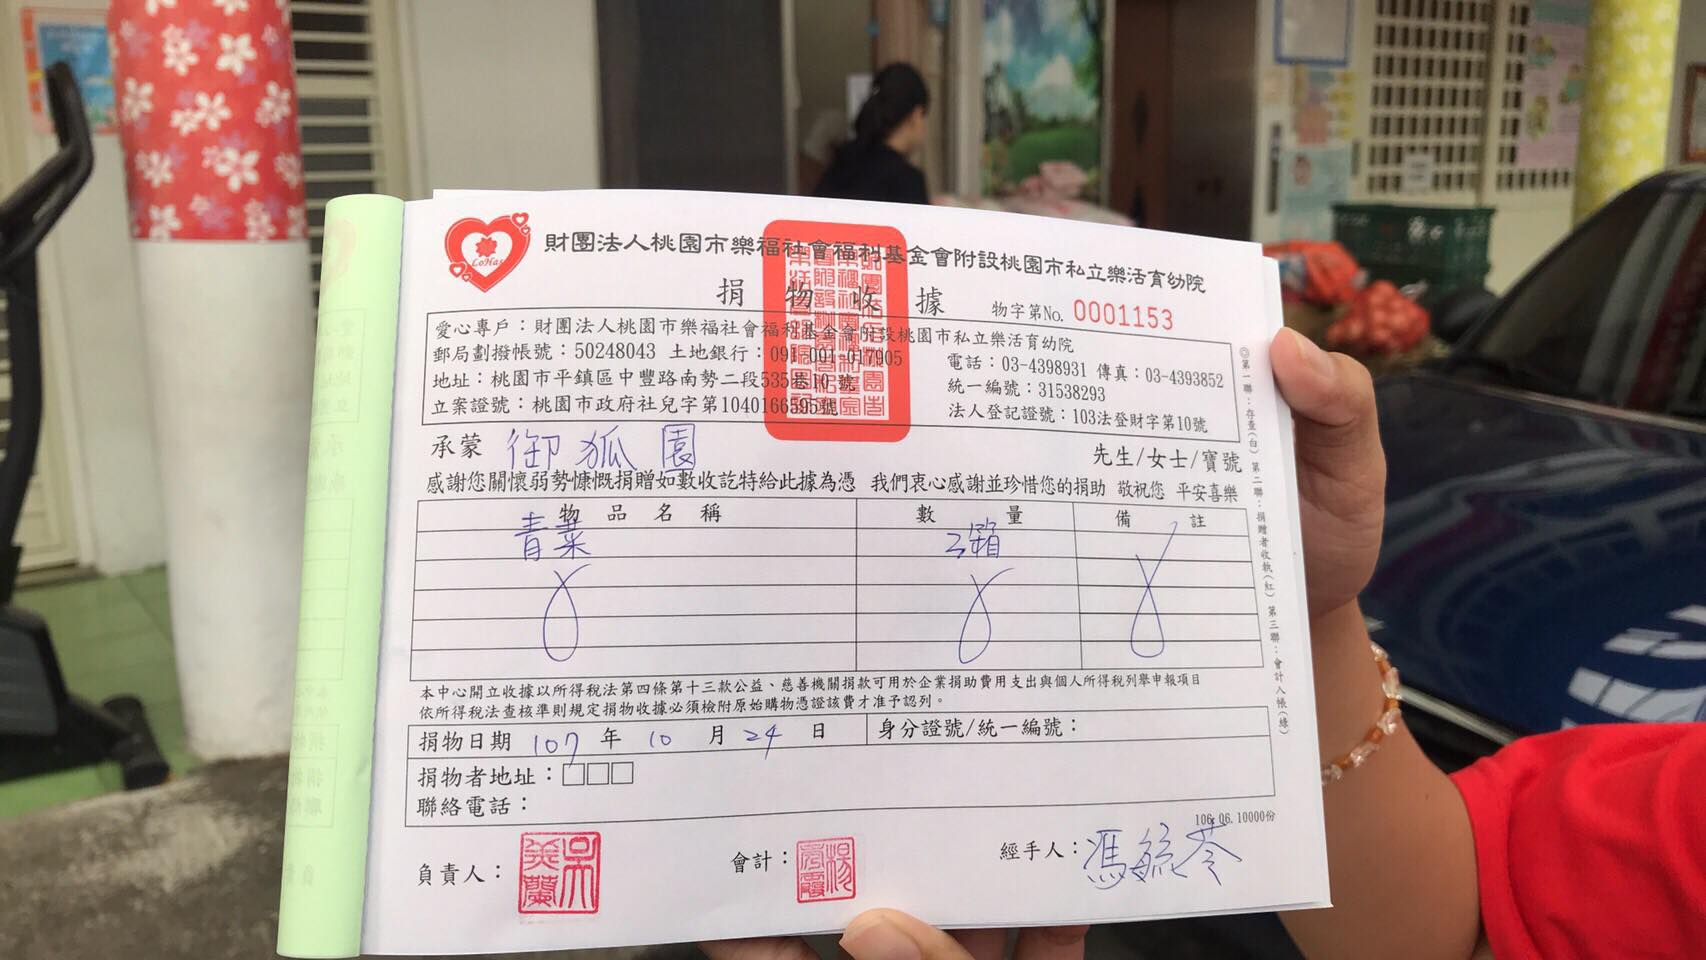 LoHas
財團法人桃園市樂福社會福利基金會附設桃園市私立樂活育幼院
捐物收據
物字第No. 0001153
愛心專戶：財團法人桃園市樂福社會福利基金會附設桃園市私立樂活育幼院
郵局劃撥帳號：50248043 土地銀行：091-001-017905
電話：03-4398931 傳真：03-4393852
地址：桃園市平鎮區中豐路南勢二段535巷10號
統一編號：31538293
立案證號：桃園市政府社兒字第1040166595號
法人登記證號：103法登財字第10號
承蒙 御狐園 先生/女士/寶號
感謝您關懷弱勢慷慨捐贈如數收訖特給此據為憑 我們衷心感謝並珍惜您的捐助 敬祝您 平安喜樂
物品名稱 數量 備註
青菜 2箱
本中心開立收據以所得稅法第四條第十三款公益、慈善機關捐款可用於企業捐助費用支出與個人所得稅列舉申報項目
依所得稅法查核準則規定捐物收據必須檢附原始購物憑證該費才准予認列。
捐物日期 107 年 10 月 24 日 身分證號/統一編號：
捐物者地址：□□□
聯絡電話：
106.06.10000份
負責人： 會計： 經手人：馮毓苓
◎第一聯：存查(白) 第二聯：捐贈者收執(紅) 第三聯：會計入帳(綠)